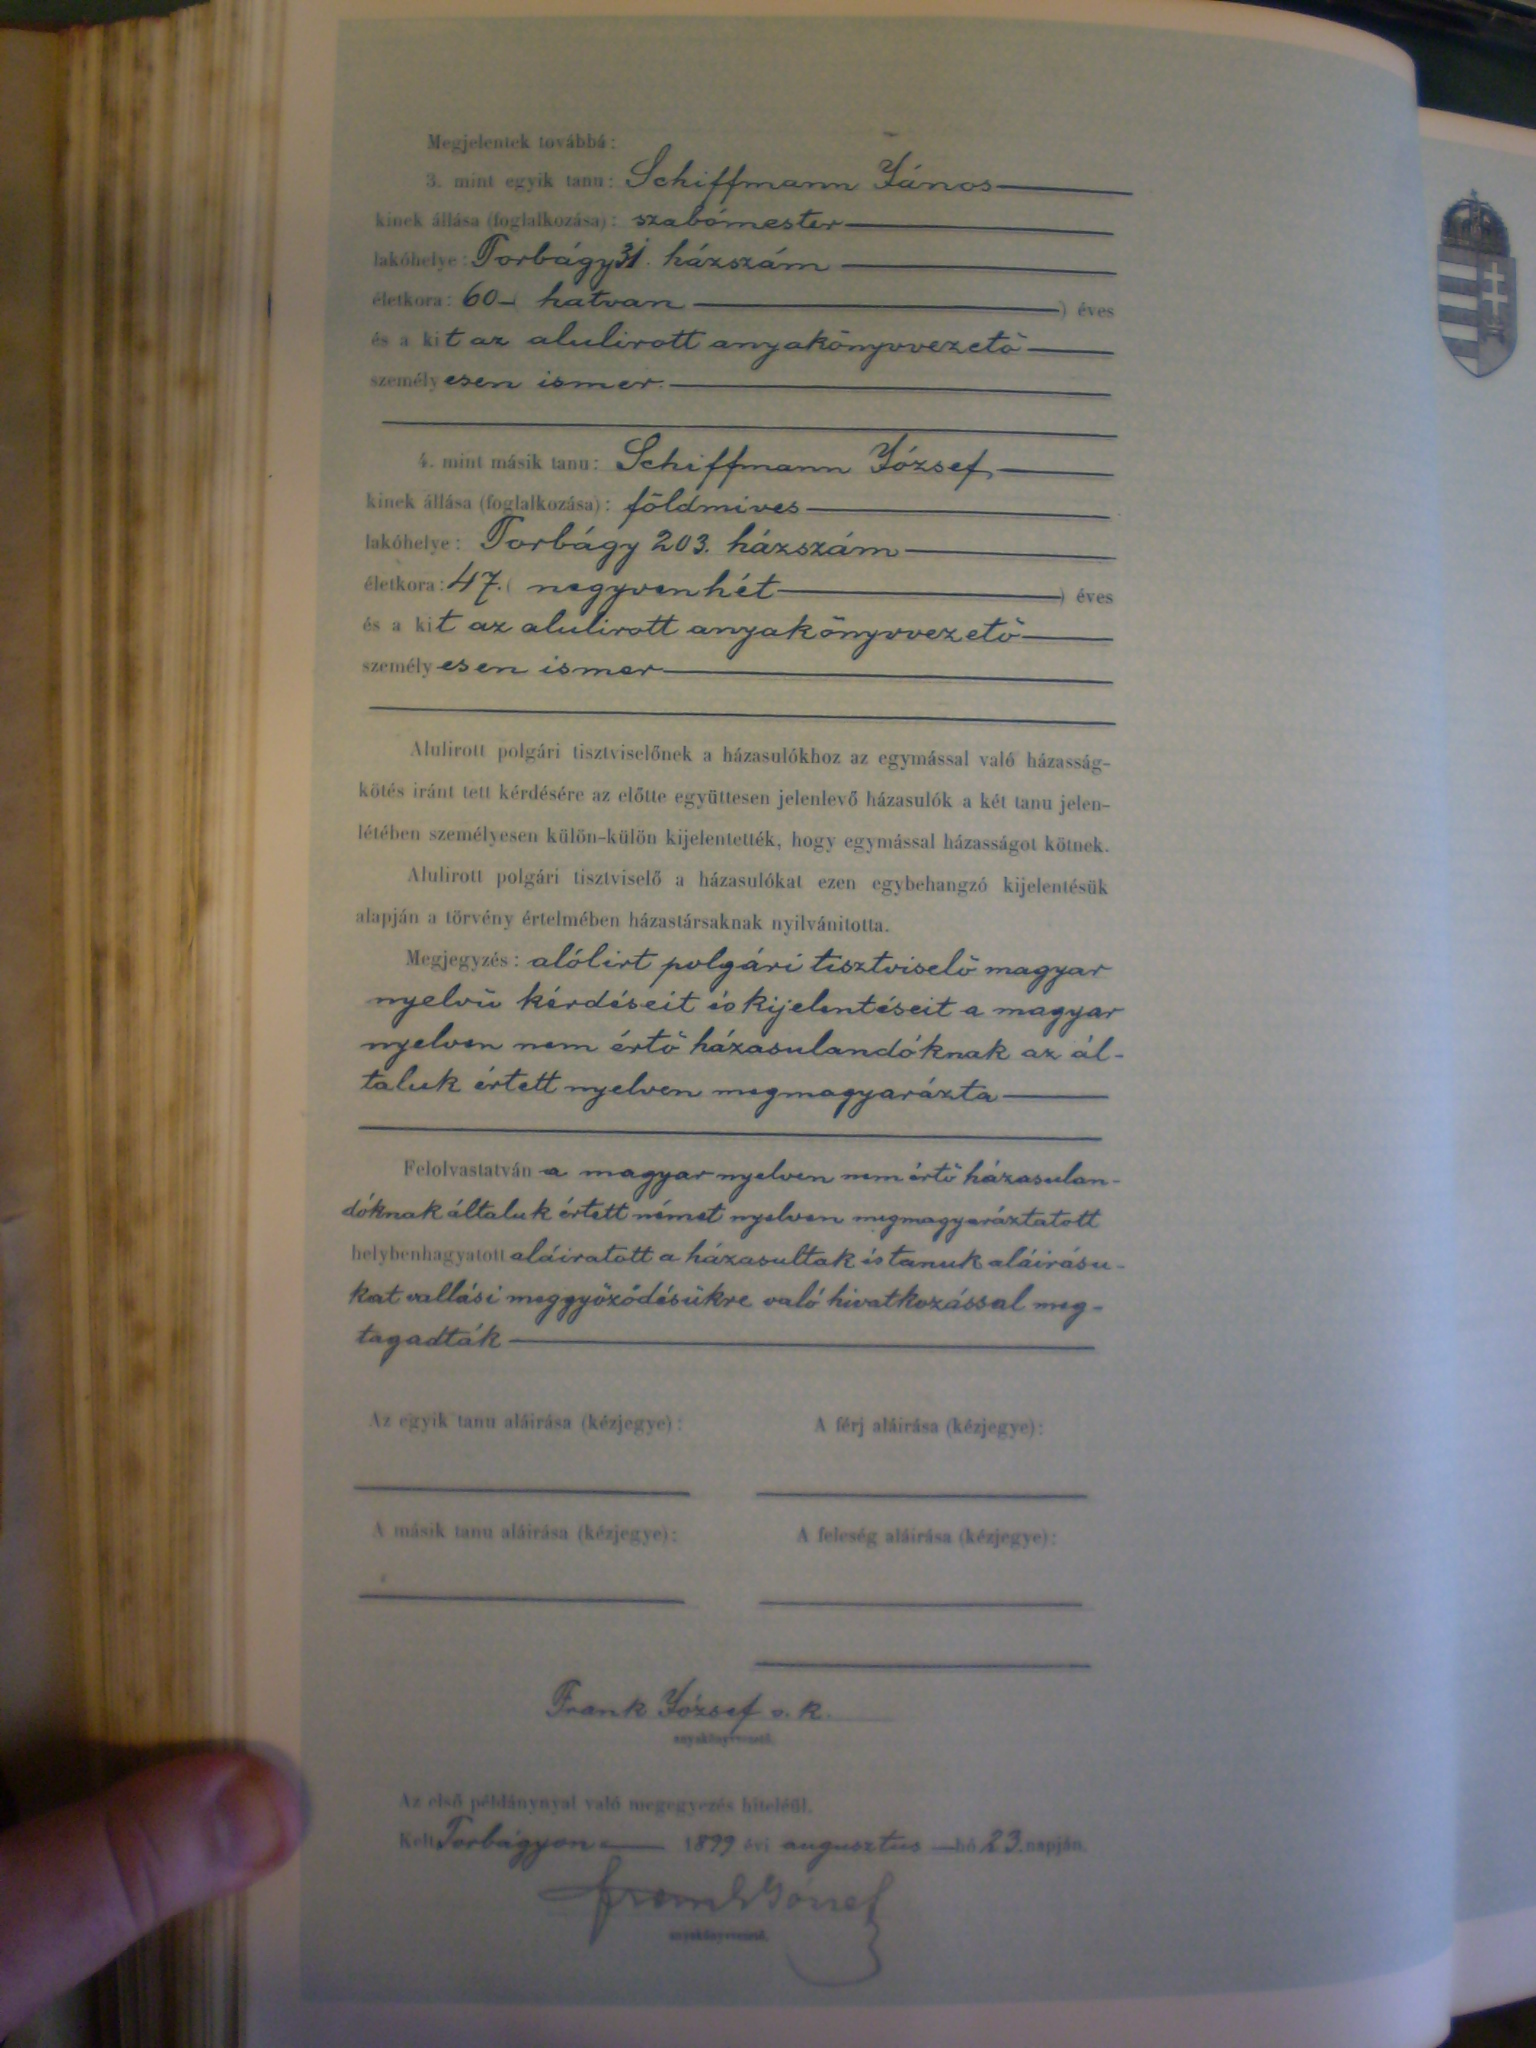 Megjelentek továbbá:
3. mint egyik tanu: Schiffmann János
kinek állása (foglalkozása): szabómester
lakóhelye: Torbágy 31. házszám
életkora: 60 ( hatvan ) éves
és a kit az alulirott anyakönyvvezető
személyesen ismer.
4. mint másik tanu: Schiffmann József
kinek állása (foglalkozása): földmives
lakóhelye: Torbágy 203. házszám
életkora: 47. ( negyvenhét ) éves
és a kit az alulirott anyakönyvvezető
személyesen ismer
Alulirott polgári tisztviselőnek a házasulókhoz az egymással való házasság-
kötés iránt tett kérdésére az előtte együttesen jelenlevő házasulók a két tanu jelen-
létében személyesen külön-külön kijelentették, hogy egymással házasságot kötnek.
Alulirott polgári tisztviselő a házasulókat ezen egybehangzó kijelentésük
alapján a törvény értelmében házastársaknak nyilvánitotta.
Megjegyzés: alólirt polgári tisztviselő magyar
nyelvü kérdéseit és kijelentéseit a magyar
nyelven nem értő házasulandóknak az ál-
taluk értett nyelven megmagyarázta
Felolvastatván a magyar nyelven nem értő házasulan-
dóknak általuk értett német nyelven megmagyaráztatott
helybenhagyatott aláiratott a házasultak és tanuk aláirásu-
kat vallási meggyőződésükre való hivatkozással meg-
tagadták
Az egyik tanu aláirása (kézjegye): A férj aláirása (kézjegye):
A másik tanu aláirása (kézjegye): A feleség aláirása (kézjegye):
Frank József s. k.
anyakönyvvezető.
Az első példánynyal való megegyezés hiteléül.
Kelt Torbágyon 1899 évi augusztus hó 23. napján.
Frank József
anyakönyvvezető.